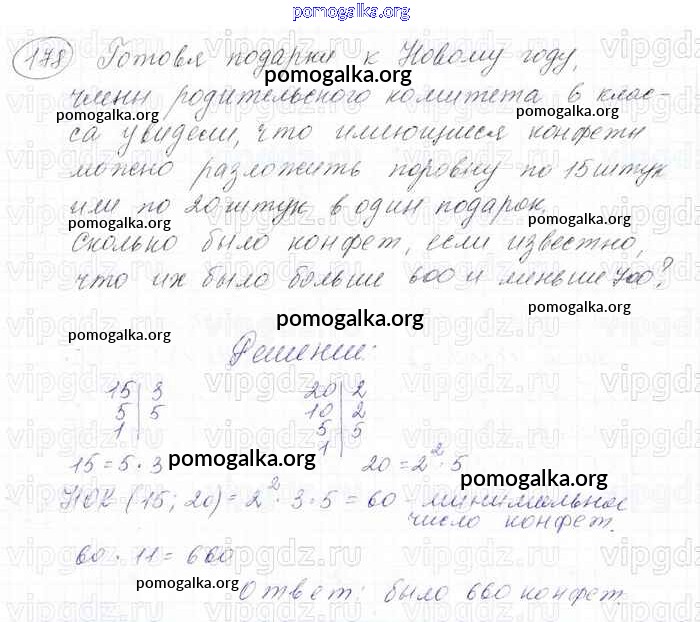 pomogalka.org
178 Готовя подарки к Новому году,
pomogalka.org
члены родительского комитета в клас-
pomogalka.org pomogalka.org
са увидели, что имеющиеся конфеты
можно разложить поровну по 15 штук
pomogalka.org pomogalka.org
или по 20 штук в один подарок
pomogalka.org pomogalka.org
Сколько было конфет, если известно,
что их было больше 600 и меньше 700?
pomogalka.org
pomogalka.org
pomogalka.org
Решение:
15 | 3 20 | 2
5 | 5 10 | 2
1 | 5 | 5
1
15 = 5 · 3 pomogalka.org 20 = 2² · 5
pomogalka.org
НОК (15; 20) = 2² · 3 · 5 = 60 - минимальное
число конфет.
60 · 11 = 660
pomogalka.org
Ответ: было 660 конфет.
pomogalka.org